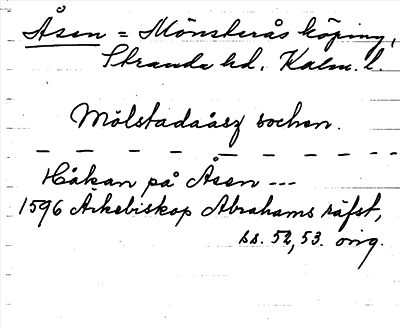 Åsen = Mönsterås köping,
Stranda hd, Kalm. l.
Mölstadaåsz sochen.
— — — — — — — — -
Håkan på Åsen ---
1596 Ärkebiskop Abrahams räfst,
ss. 52, 53. orig.